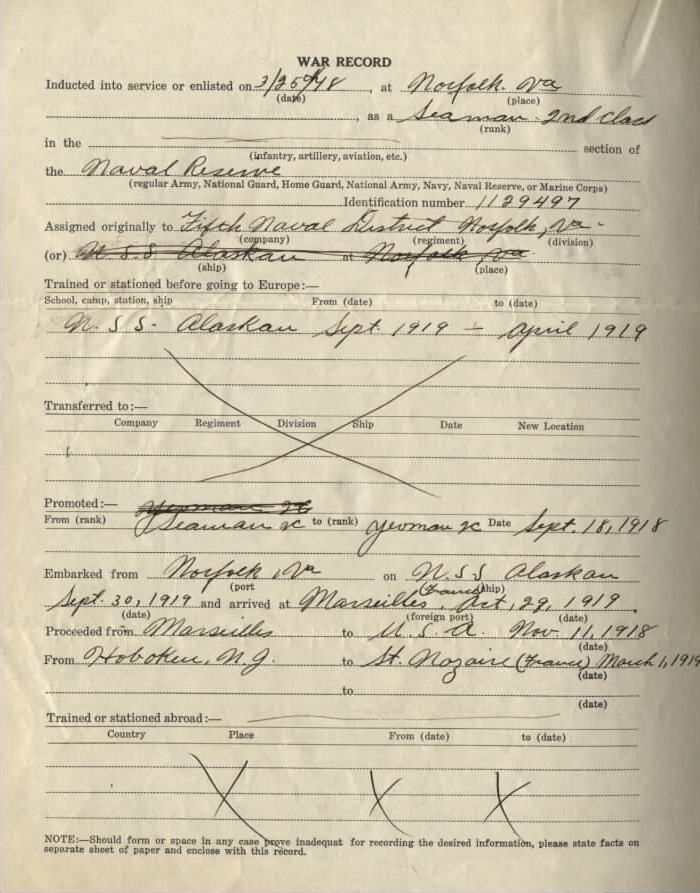 WAR RECORD
Inducted into service or enlisted on 3/25/18, at Norfolk. Va
(date) (place)
, as a Seaman - 2nd Class
(rank)
in the section of
(infantry, artillery, aviation, etc.)
the Naval Reserve
(regular Army, National Guard, Home Guard, National Army, Navy, Naval Reserve, or Marine Corps)
Identification number 1129497
Assigned originally to Fifth Naval District Norfolk, Va.
(company) (regiment) (division)
(or) U. S. S. Alaskan at Norfolk, Va.
(ship) (place)
Trained or stationed before going to Europe:—
School, camp, station, ship From (date) to (date)
U. S. S. Alaskan Sept. 1919 - April 1919
Transferred to:—
Company Regiment Division Ship Date New Location
Promoted:— Yeoman 2c
From (rank) Seaman 2c to (rank) Yeoman 2c Date Sept. 18, 1918
Embarked from Norfolk, Va on U. S. S. Alaskan
(port (ship)
Sept. 30, 1919 and arrived at Marseilles, (France) Oct, 29, 1919.
(date) (foreign port) (date)
Proceeded from Marseilles to U. S. A. Nov. 11, 1918
(date)
From Hoboken, N.J. to St. Nazaire (France) March 1, 1919
(date)
to
(date)
Trained or stationed abroad:—
Country Place From (date) to (date)
NOTE:—Should form or space in any case prove inadequat for recording the desired information, please state facts on
separate sheet of paper and enclose with this record.